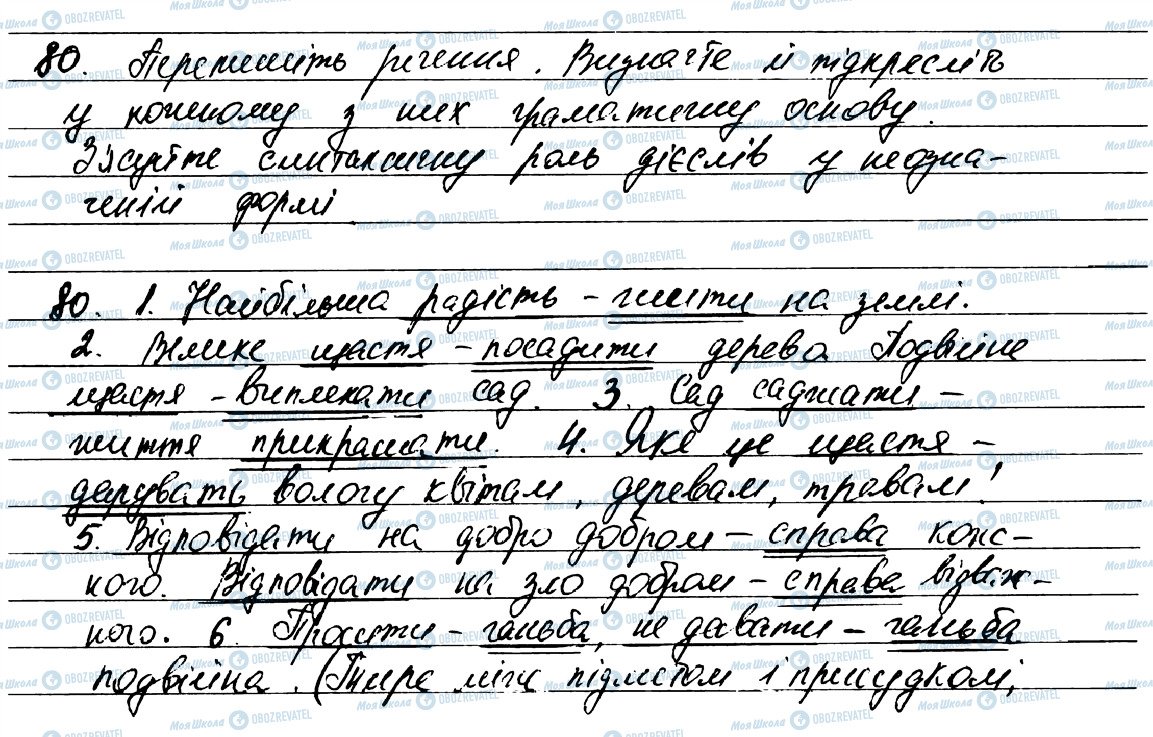 80. Перепишіть речення. Визначте й підкресліть
у кожному з них граматичну основу.
З'ясуйте синтаксичну роль дієслів у неозна-
ченій формі.
80. 1. Найбільша радість - жити на землі.
2. Велике щастя - посадити дерево Подвійне
щастя - виплекати сад. 3. Сад саджати -
життя прикрашати. 4. Яке це щастя -
дарувать вологу квітам, деревам, травам!
5. Відповідати на добро добром - справа кож-
ного. Відповідати на зло добром - справа відваж-
ного. 6. Просити - ганьба, не давати - ганьба
подвійна. (Тире між підметом і присудком,
Моя Школа OBOZREVATEL